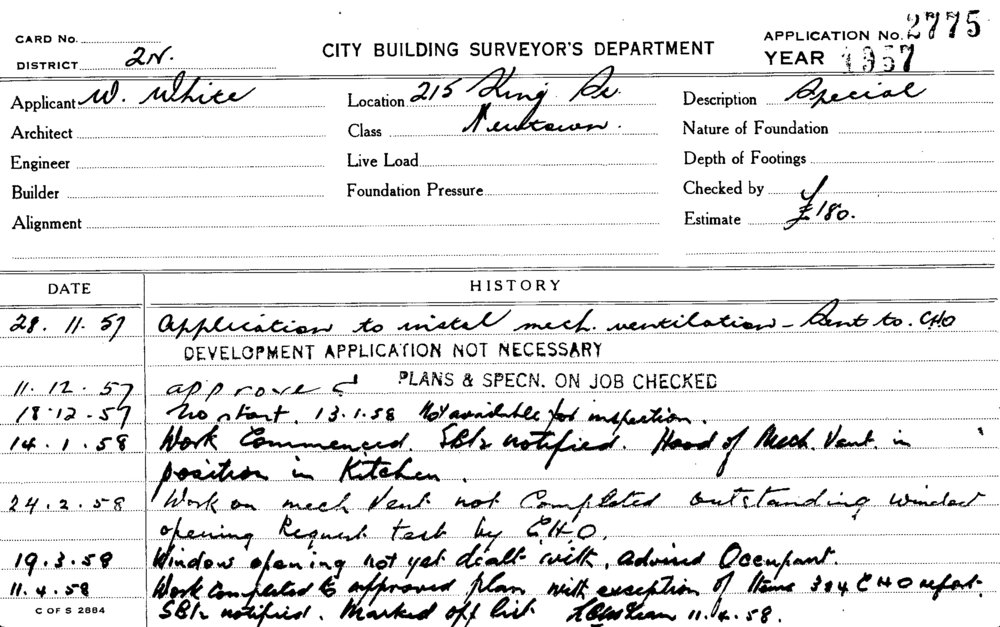 CARD No.
DISTRICT 2N.
CITY BUILDING SURVEYOR'S DEPARTMENT
APPLICATION No. 2775
YEAR 1957
Applicant W. White
Location 215 King St.
Description Special
Architect
Class Newtown.
Nature of Foundation
Engineer
Live Load
Depth of Footings
Builder
Foundation Pressure
Checked by
Alignment
Estimate £180.
DATE HISTORY
28. 11. 57 Application to instal mech. ventilation - Sent to. CHO
DEVELOPMENT APPLICATION NOT NECESSARY
11. 12. 57 approved PLANS & SPECN. ON JOB CHECKED
18. 12. 57 No start. 13.1.58 Not available for inspection.
14. 1. 58 Work Commenced. notified. Hood of Mech. Vent. in
position in Kitchen.
24. 2. 58 Work on mech Vent not Completed outstanding window
opening Request test by C.H.O.
19. 3. 58 Window opening not yet dealt with, advised Occupant.
11. 4. 58 Work Completed to approved plan with exception of Items 3&4 CHO report.
notified. Marked off list 11.4.58.
C OF S 2884